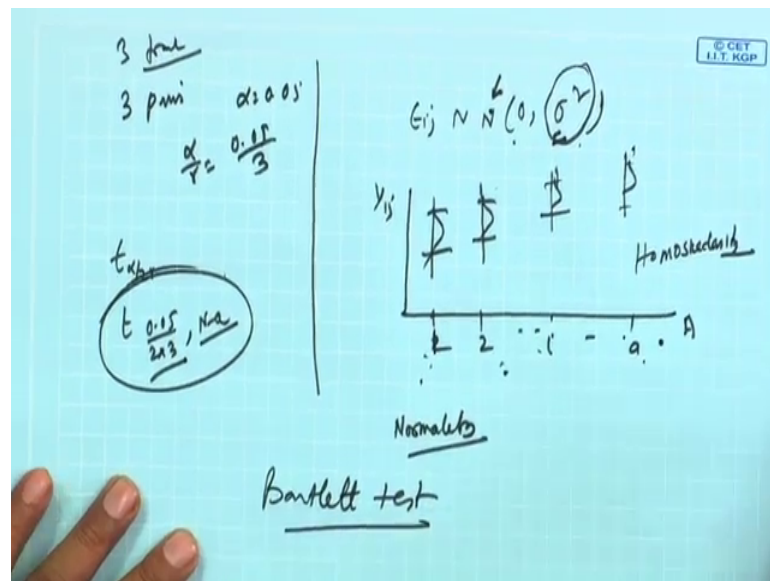 3
3
α = 0.05
α/r = 0.05/3
t
t 0.05/2×3, N-a
© CET
I.I.T. KGP
Eij ~ N (0, σ²)
Yij
Homoskedasticity
2 ... i - a . A
Normality
Bartlett test